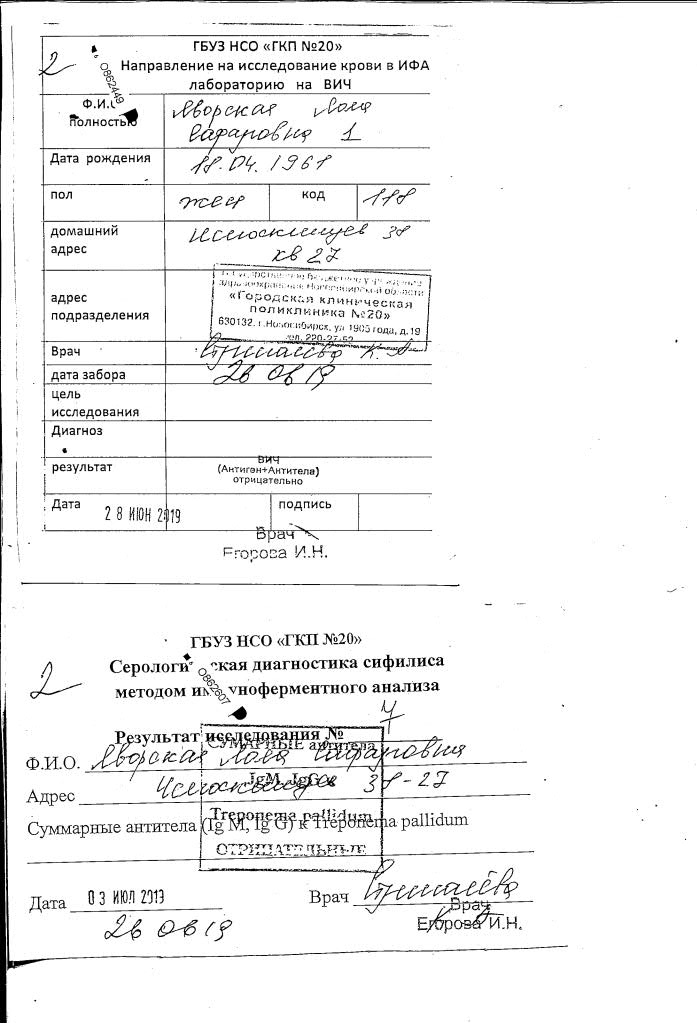 ГБУЗ НСО «ГКП №20»
Направление на исследование крови в ИФА
лабораторию на ВИЧ
2
O862449
Ф.И.О
полностью
Яворская Лола
Сафаровна 1
Дата рождения
18.04.1961
пол
жен
код
118
домашний
адрес
Челюскинцев 38
кв 27
адрес
подразделения
Государственное бюджетное учреждение
здравоохранения Новосибирской области
«Городская клиническая
поликлиника №20»
630132, г.Новосибирск, ул 1905 года, д.19
тел. 220-27-52
Врач
дата забора
26 06 19
цель
исследования
Диагноз
результат
ВИЧ
(Антиген+Антитела)
отрицательно
Дата
28 ИЮН 2019
подпись
Врач
Егорова И.Н.
ГБУЗ НСО «ГКП №20»
Серологическая диагностика сифилиса
методом иммуноферментного анализа
2
O862607
Результат исследования №
Ф.И.О. Яворская Лола Сафаровна
Адрес Челюскинцев 38-27
Суммарные антитела (Ig M, Ig G) к Treponema pallidum
СУМАРНЫЕ антитела
JgM, JgG к
Treponema pallidum
ОТРИЦАТЕЛЬНЫЕ
Дата 03 ИЮЛ 2019
Врач
26 06 19
Врач
Егорова И.Н.